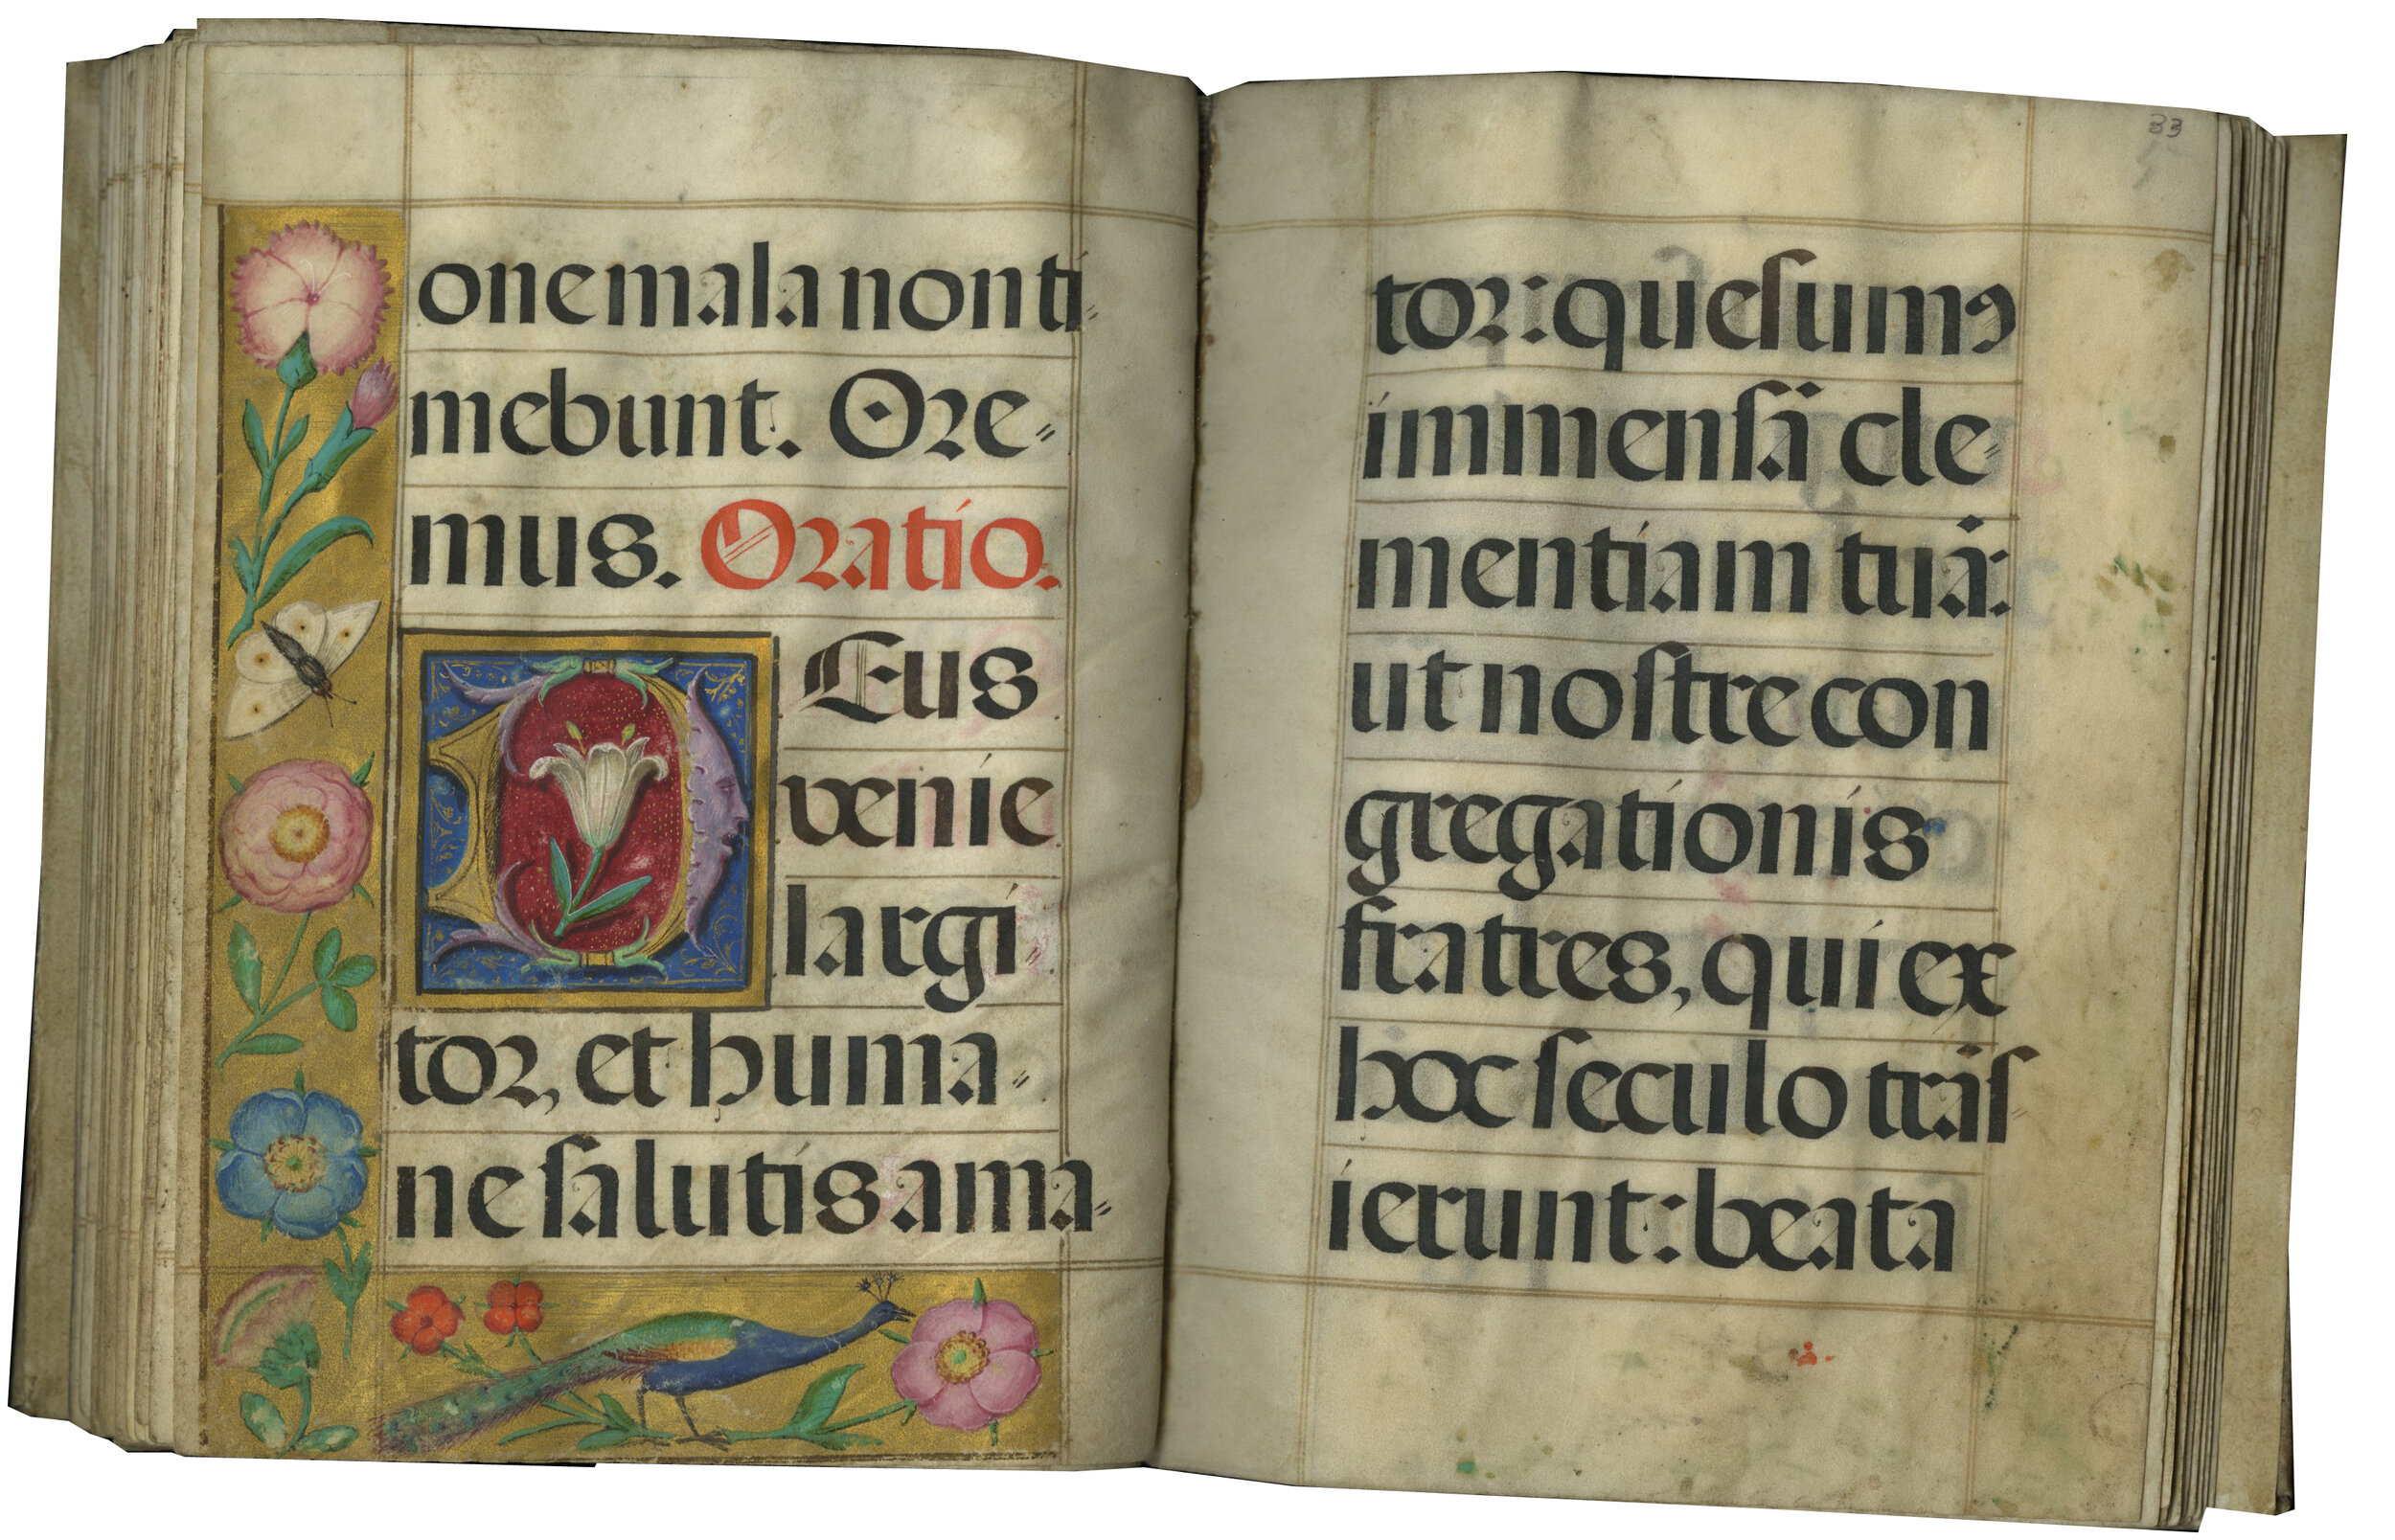 one mala non ti⸗
mebunt. Ore⸗
mus. Oratio.
DEus
venie
largi
tor, et huma⸗
ne ſalutis ama⸗
33
tor: queſumꝯ
immenſā cle⸗
mentiam tuā:
ut noſtre con
gregationis
fratres, qui ex
hoc ſeculo trāſ⸗
ierunt: beata